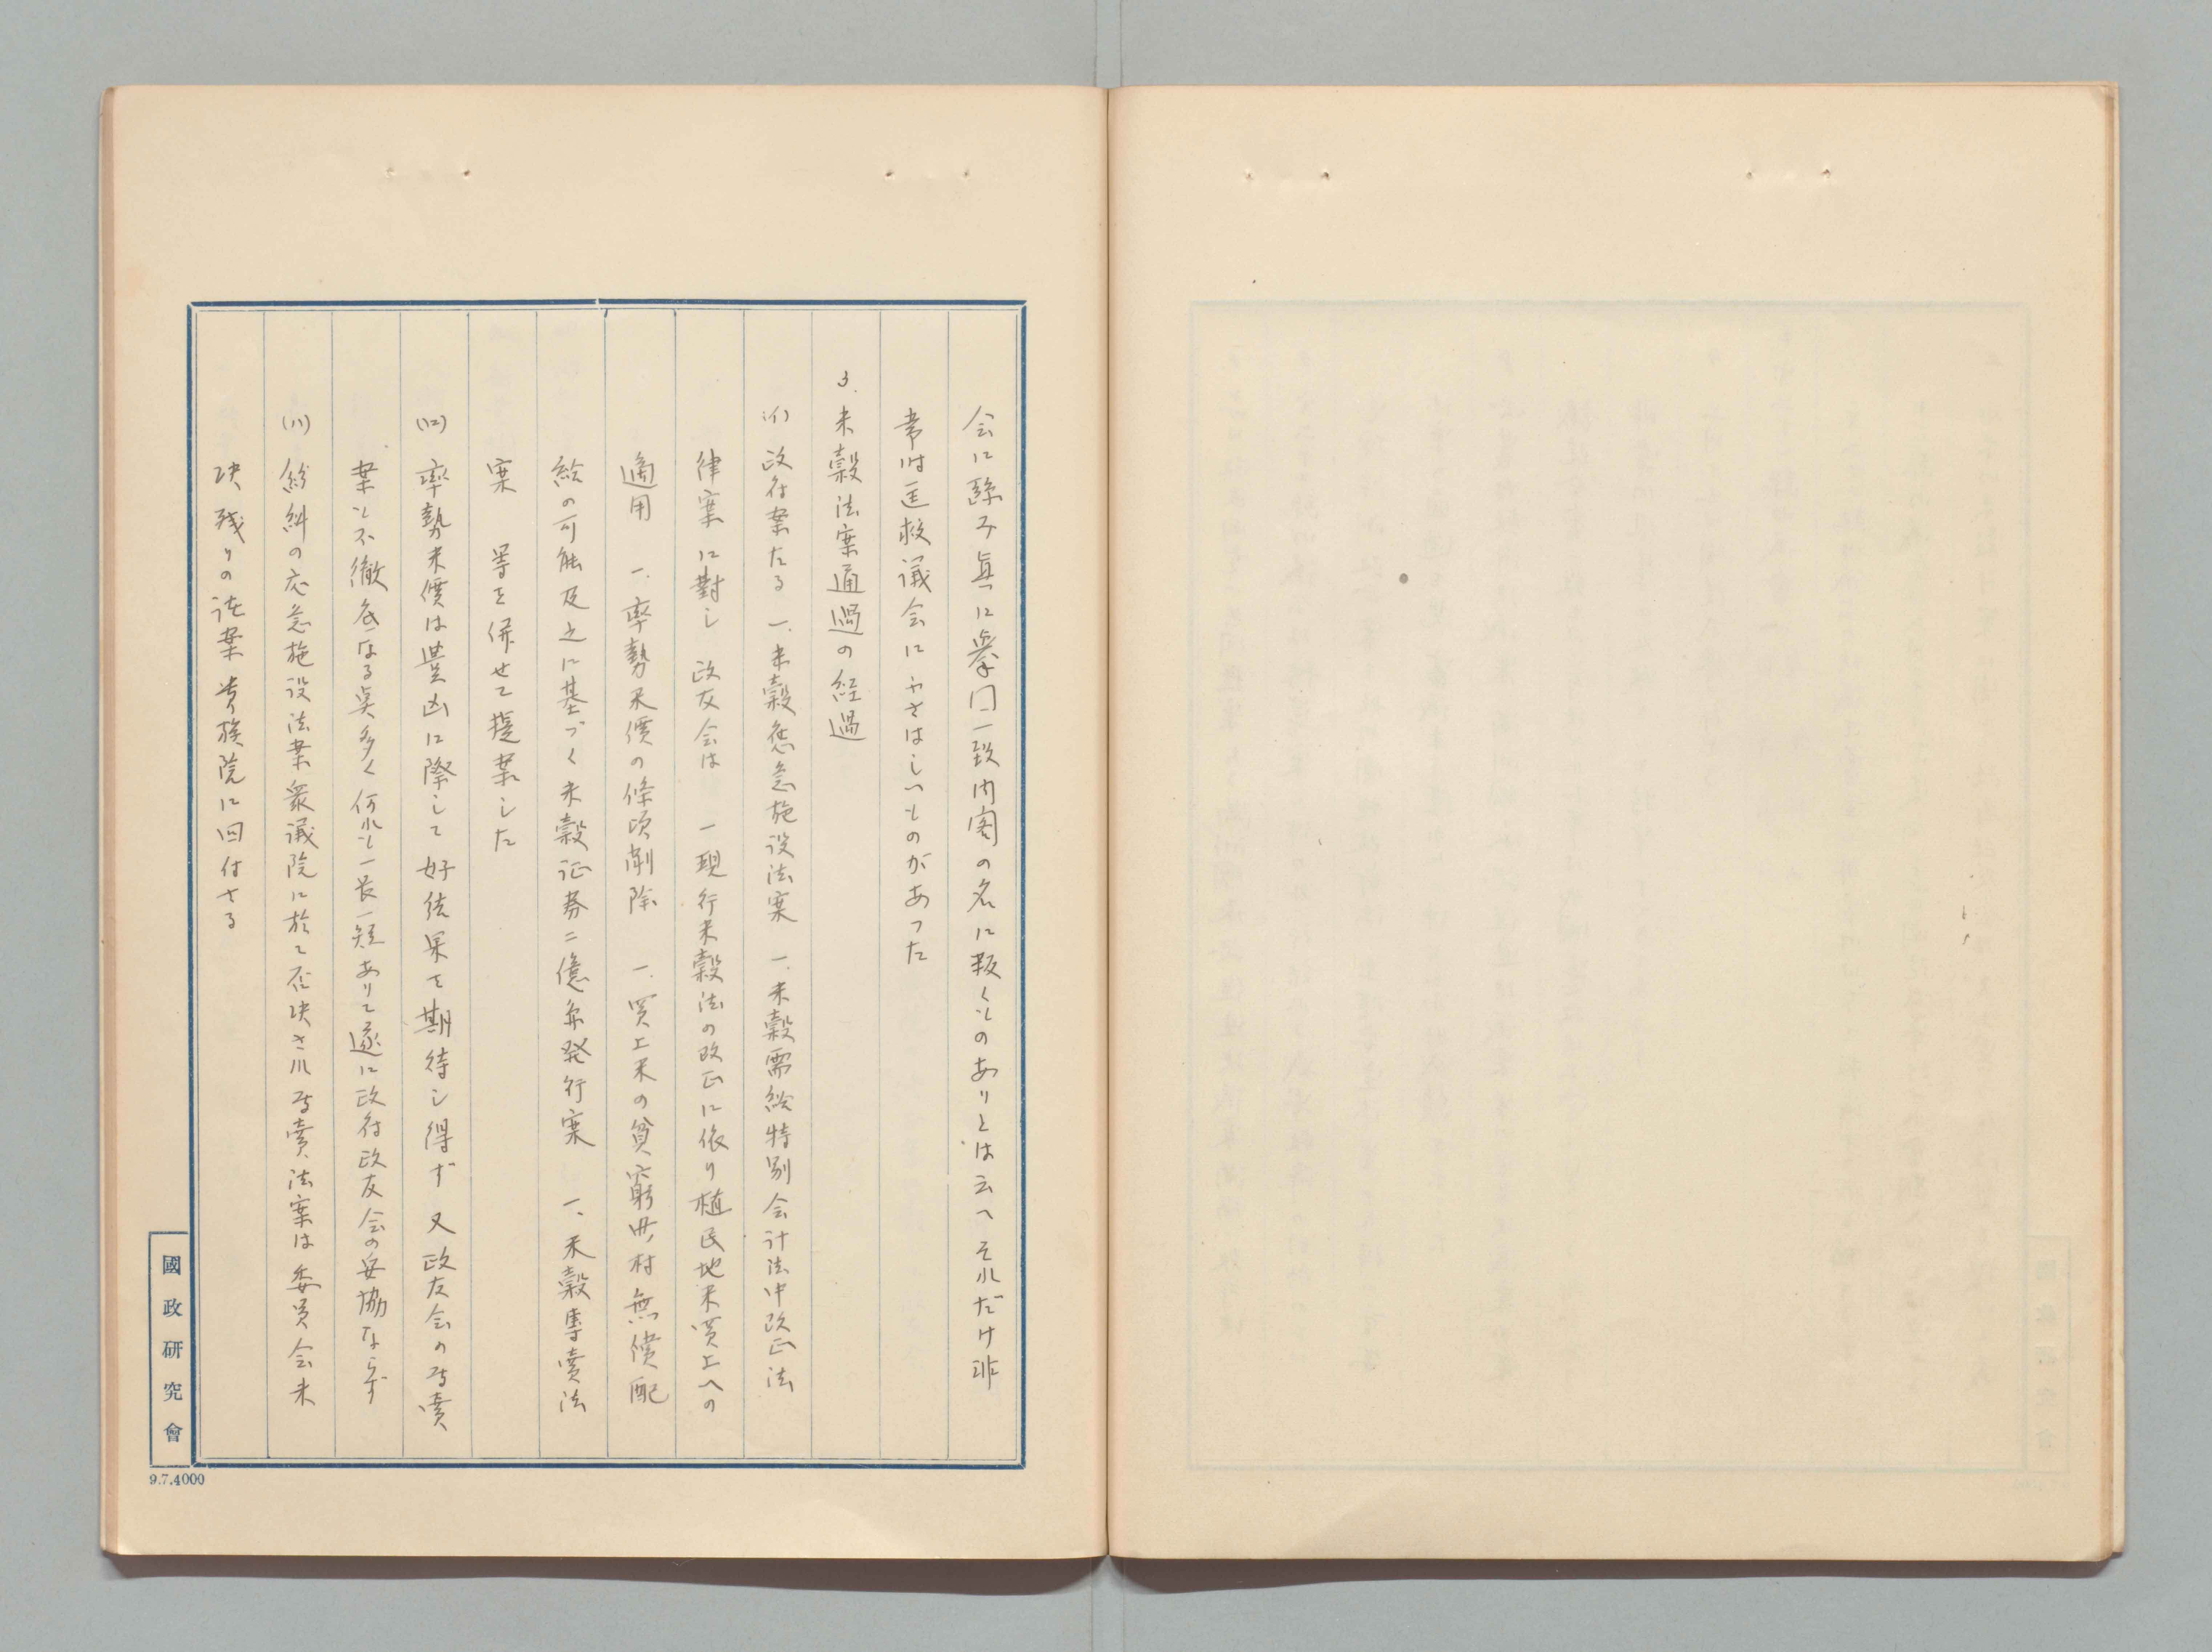 会に臨み真に挙国一致内閣の名に叛くものありとは云へそれだけ非
常時匡救議会にふさはしいものがあった
3. 米穀法案通過の経過
(イ) 政府案たる 一.米穀應急施設法案 一.米穀需給特別会計法中改正法
律案に對し 政友会は 一現行米穀法の改正に依り植民地米買上への
適用 一.率勢米價の條項削除 一.買上米の貧窮町村無償配
給の可能及之に基づく米穀証券二億円発行案 一、米穀專賣法
案 等を併せて提案した
(ロ) 率勢米價は豊凶に際して好結果を期待し得ず 又政友会の専賣
案も不徹底なる点多く何れも一長一短ありて遂に政府政友会の妥協ならず
(ハ) 紛糾の応急施設法案衆議院に於て否決され 専賣法案は委員会未
決 残りの法案貴族院に回付さる
國政研究會
9.7.4000